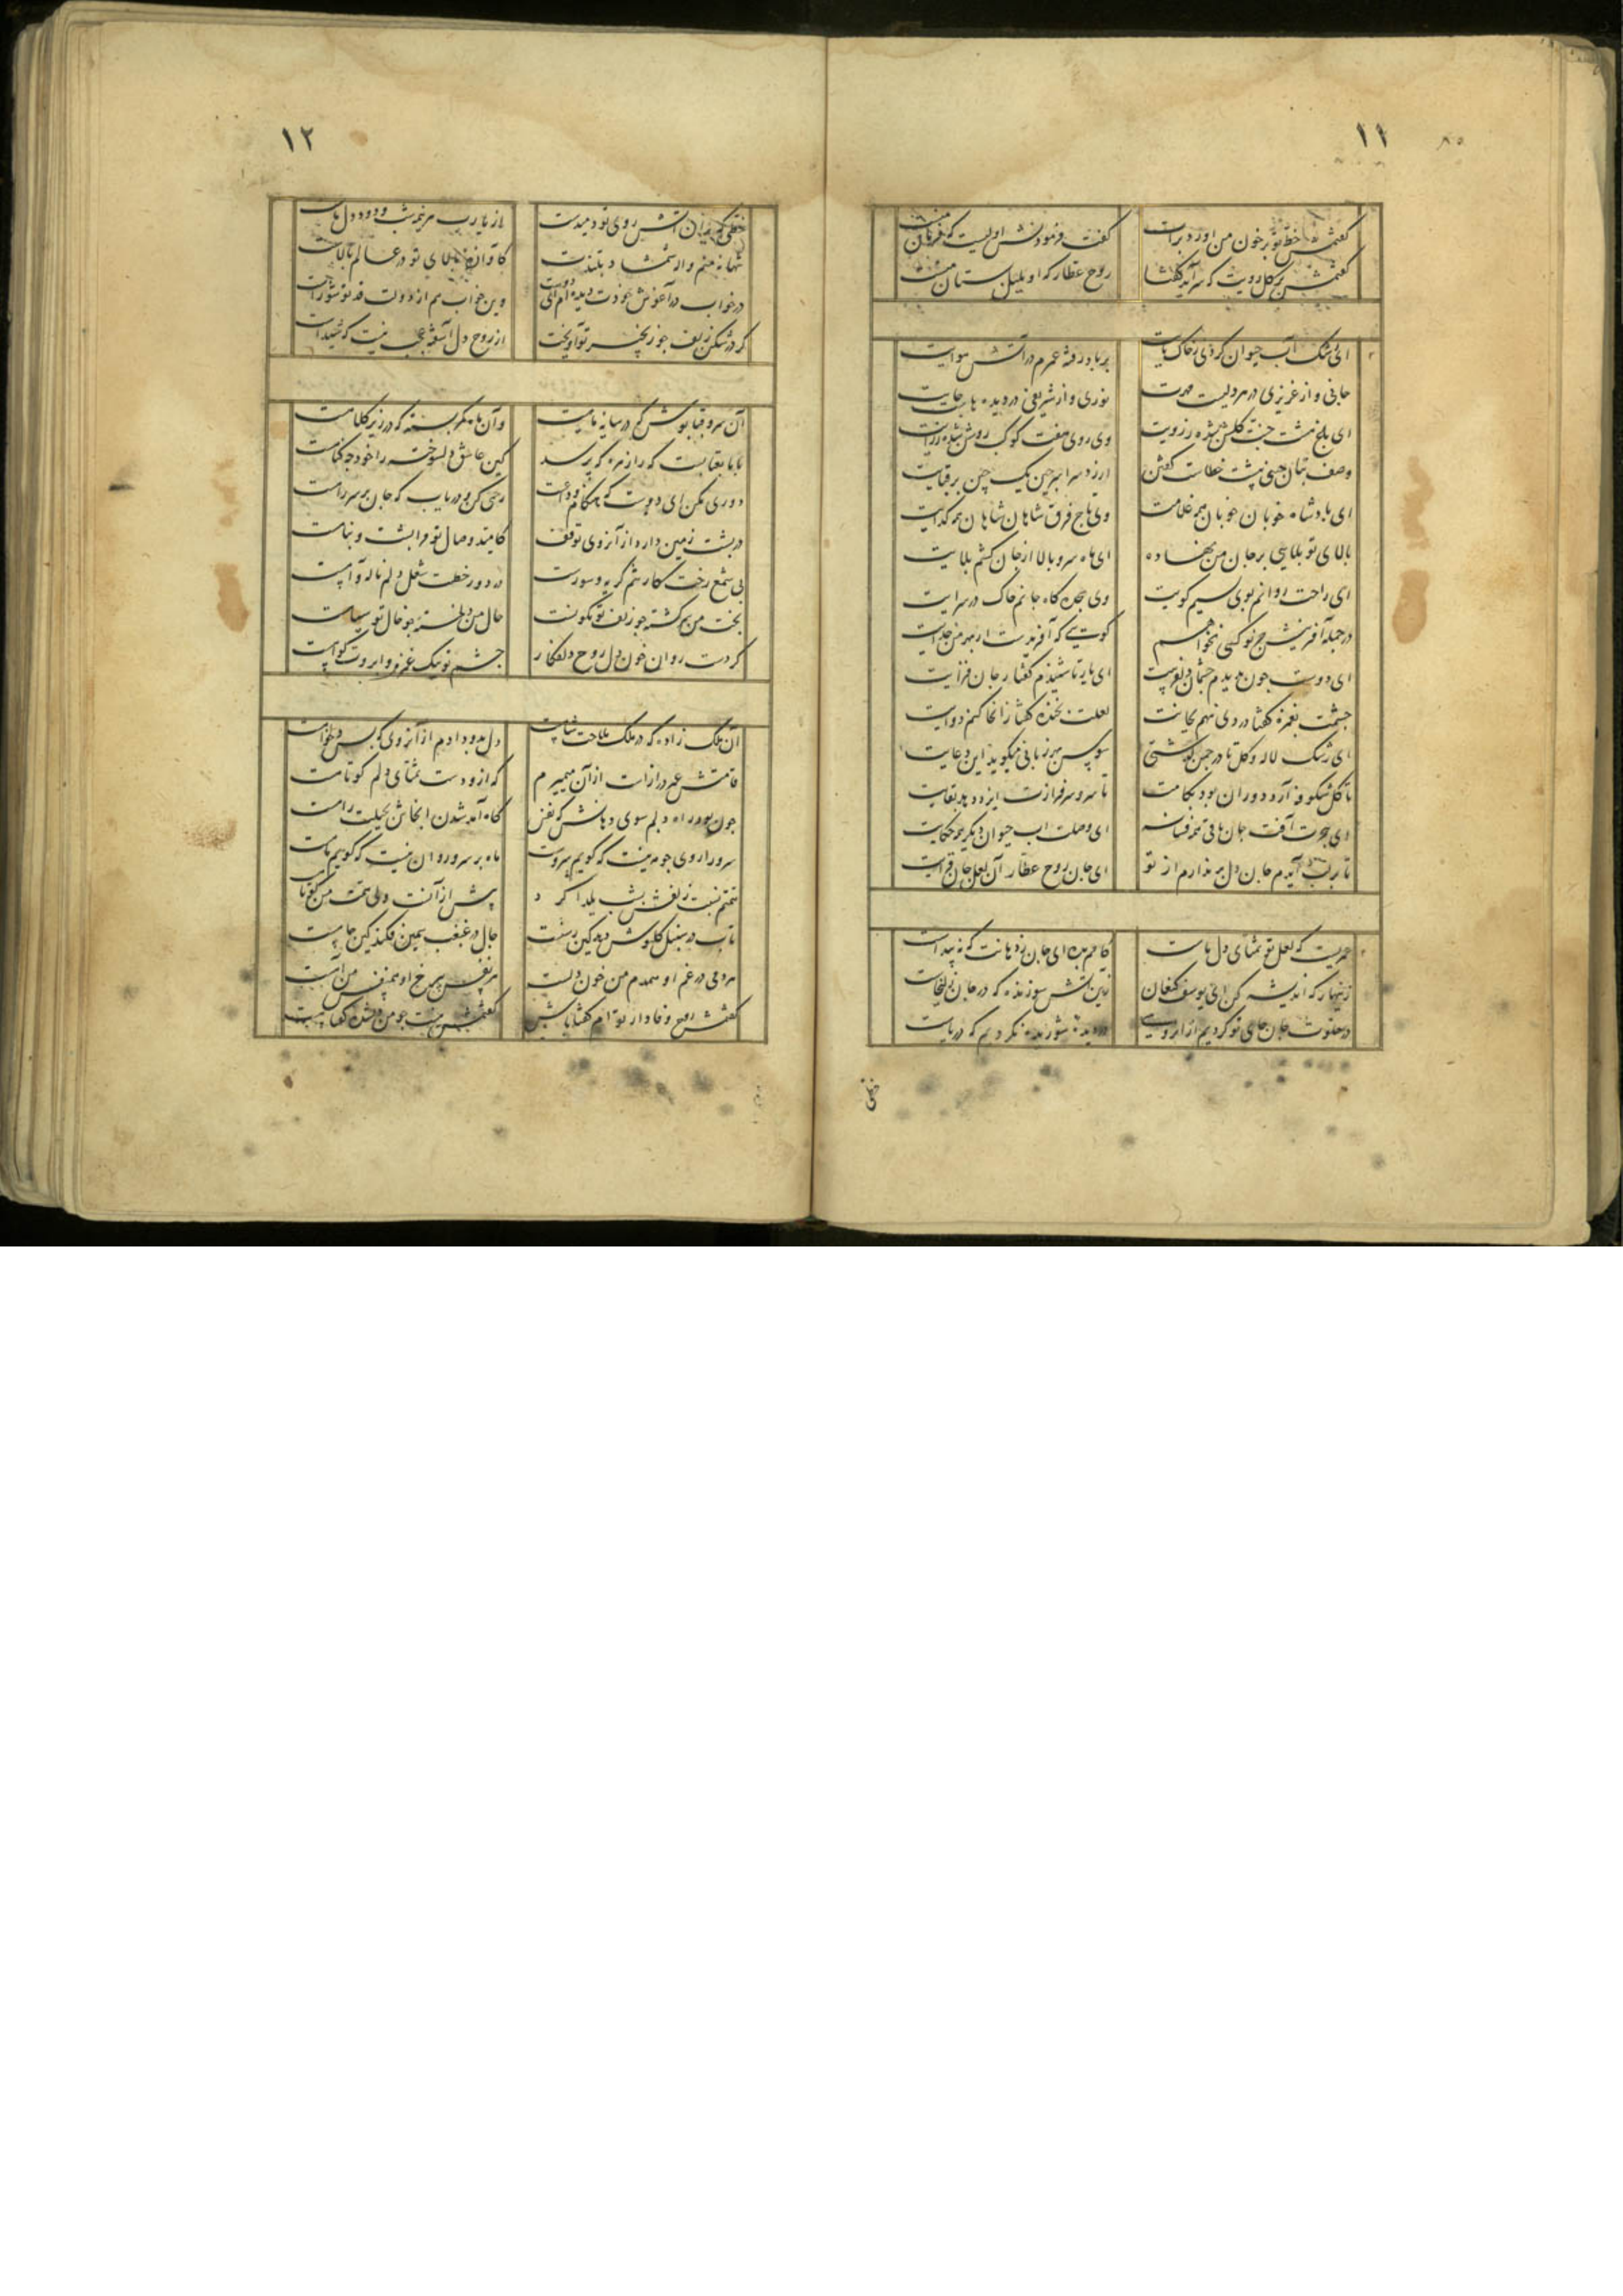 ۱۱
گفتمش خط تو بر خون من آورد برات گفت فرمودنش اولیست که فرمان منست
گفتمش بر گل رویت که سراید گفتا روح عطار که او بلبل بستان منست
ای رشک آب حیوان گردی ز خاک پایت بر باد رفته عمرم در آتش هوایت
جانی و از عزیزی در هر دلیست مهرت نوری و از شریفی در دیده هاست جایت
ای باغ هشت جنت گلشن شده ز رویت وی روی هفت کوکب روشن شده ز رایت
وصف بتان چین پشت خطاست گفتن ارزد سراسر چین یک چین بر قبایت
ای پادشاه خوبان خوبان همه غلامت وی تاج فرق شاهان شاهان همه گدایت
بالای تو بلایی بر جان من نهاده ای ماه سرو بالا از جان کشم بلایت
ای راحت روانم بوی نسیم کویت وی سجده گاه جانم خاک در سرایت
در جمله آفرینش جز تو کسی نخواهم کوتیی که آفریدست از بهر من خدایت
ای دوست چون بدیدم چشمان دلفریبت ای یار تا شنیدم گفتار جان فزایت
چشمت بغمزه گفتا دردی نهم بجانت لعلت بخنده گفتا زانجا کنم دوایت
ای رشک لاله و گل تا در چمن گذشتی سوسن بهر زبانی میگوید این دعایت
تا گل شکوفه آرد دوران بود بکامت تا سرو سرفرازست ایزد دهد بقایت
ای هجرت آفت جان باقی همه فسانه ای وصلت آب حیوان دیگر همه حکایت
تا بر لب آیدم جان دل بر ندارم از تو ای جان روح عطار آن لعل جان فزایت
عمریست که لعل تو تمنای دل ماست کامم بده ای جان ز دهانت که نه پیداست
زنهار که اندیشه کن ای یوسف کنعان زین آتش سوزنده که در جان زلیخاست
در خلوت جان جای تو کردیم از آن روی در دیده شوریده نکردیم که دریاست
خطی
۱۲
خطی که بر آن آتش روی تو دمیدست از یارب هر نیم شب و دود دل ماست
تنها نه منم واله شمشاد بلندت کاوازه بالای تو در عالم بالاست
در خواب در آغوش خودت دیده ام ای دوست وین خواب هم از دولت قد تو شود راست
گر در شکن زلف چو زنجیر تو آویخت از روح دل آشفته عجب نیست که شیداست
آن سرو قباپوش که در سایه نامیست وآن ماه کمر بسته که در زیر کلامست
با ما بعتابست که را زهره که پرسد کین عاشق دلسوخته را خود چه گناهست
دوری مکن ای دوست که هنگام وداعست رحمی کن و دریاب که جان بر سر راهست
در پشت زمین دارد از آن روی توقف کامید وصال تو مرا پشت و پناهست
بی شمع رخت کار تنم گریه و سوزست در دور خطت شغل دلم ناله و آهست
بخت من برگشته چو زلف تو نگونست حال من دلخسته چو خال تو سیاهست
کردست روان خون دل روح دلفگار چشم تو نیک غمزه و ابروت گواهست
آن ملک زاده که در ملک ملاحت شاهست دل بدو دادم از آن روی که بس دلخواهست
قامتش عمر درازست از آن میمیرم که ازو دست تمنای دلم کوتاهست
چون بود راه دلم سوی دهانش که نفس گاه آمد شدن آنجاش بحیلت راهست
سرو را روی چو مه نیست که گویم سروست ماه بر سرو روان نیست که گویم ماهست
تاب در سنبل گلپوش دهد کین رسنست خال در غبغب سیمین فکند کین چاهست
مردمی در غم او همدم من خون دلست هر نفس بی رخ او همنفس من آهست
گفتمش روح وفادار تو ام گفتا باش